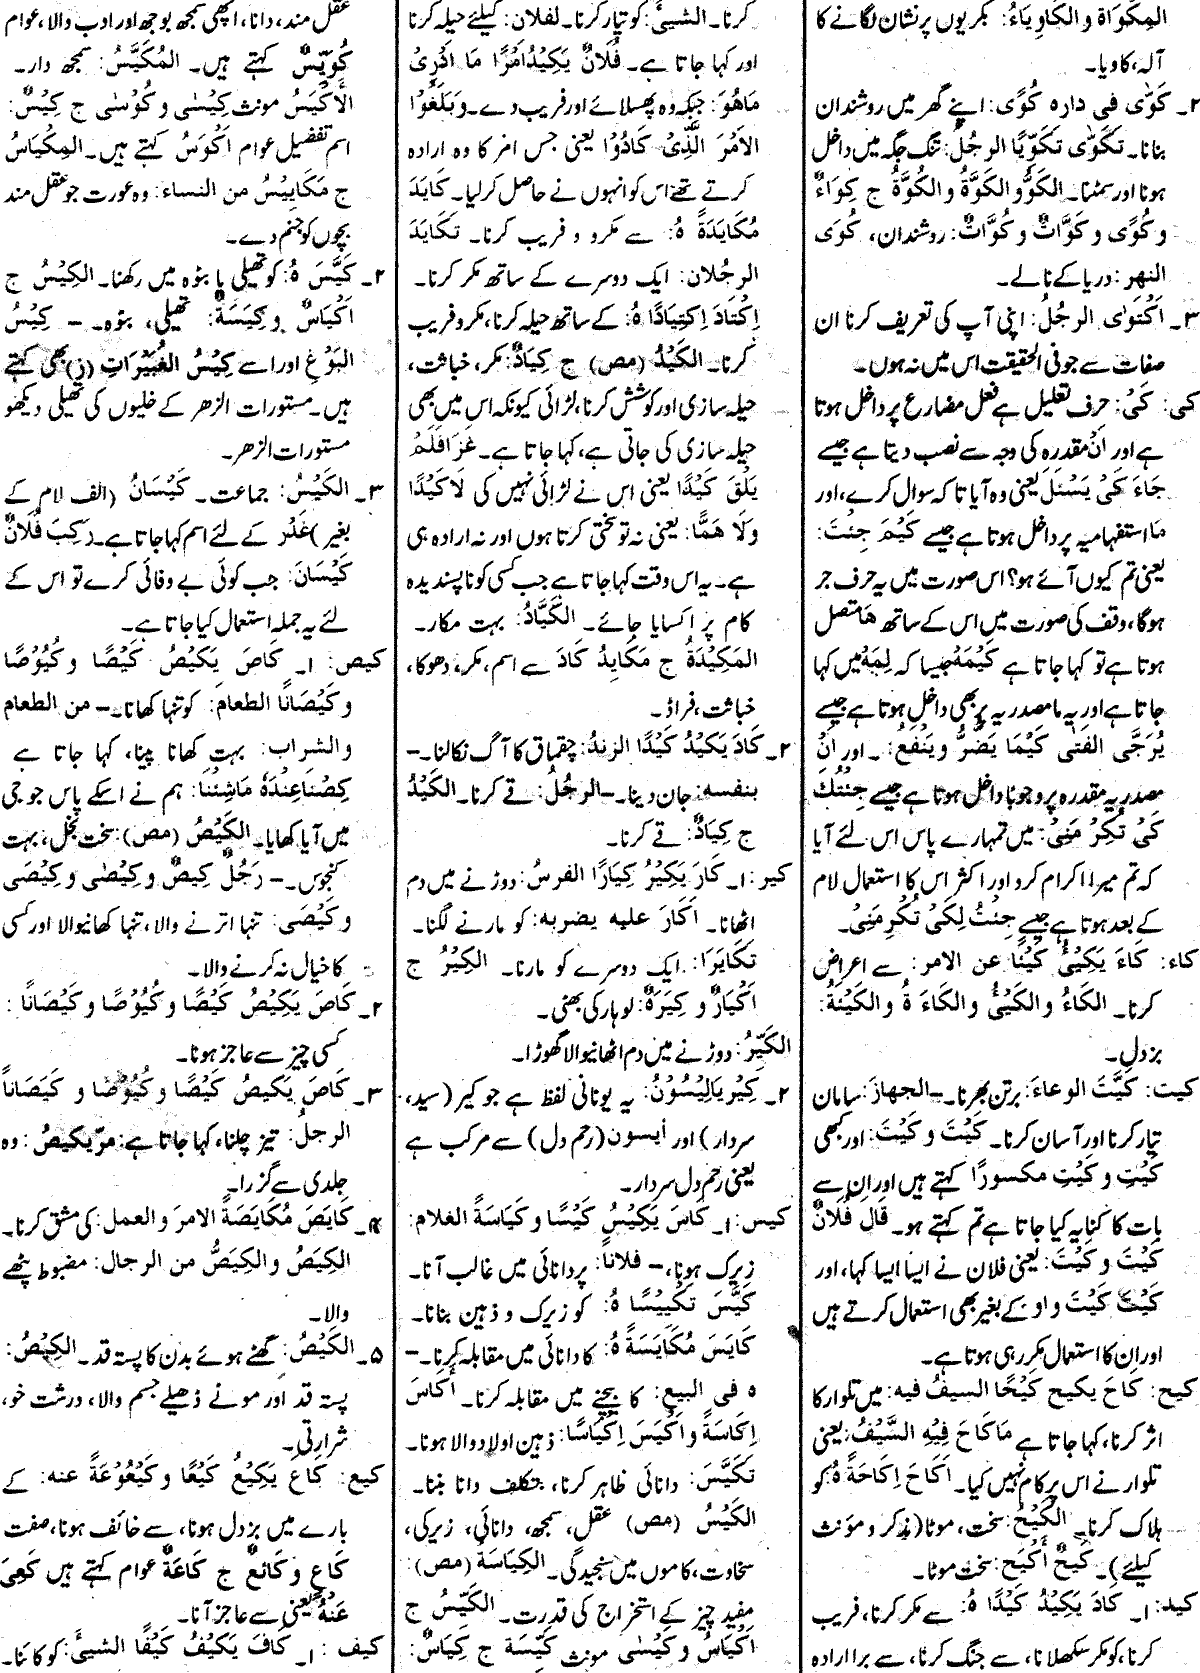 المِكْوَاة والكَاوِيَاءُ: بکریوں پر نشان لگانے کا
آلہ، کاویا۔
۲۔ كَوّٰى فى داره كُوًى: اپنے گھر میں روشندان
بنانا۔ تَكَوّٰى تَكَوِّيًا الرجُلُ: تنگ جگہ میں داخل
ہونا اور سمٹنا۔ الكَوُّ والكَوَّةُ والكُوَّةُ ج كِوَاءٌ
و كُوًى و كَوَّاتٌ و كُوَّاتٌ: روشندان، كُوَى
النهر: دریا کے نالے۔
۳۔ اَكْتَوٰى الرجُلُ: اپنی آپ کی تعریف کرنا ان
صفات سے جو فی الحقیقت اس میں نہ ہوں۔
کی: كَىْ: حرف تعلیل ہے فعل مضارع پر داخل ہوتا
ہے اور اَنْ مقدرہ کی وجہ سے نصب دیتا ہے جیسے
جَاءَ كَىْ يَسْئَلَ یعنی وہ آیا تا کہ سوال کرے، اور
ما استفہامیہ پر داخل ہوتا ہے جیسے كَيْمَ جِئْتَ:
یعنی تم کیوں آئے ہو؟ اس صورت میں یہ حرف جر
ہوگا، وقف کی صورت میں اس کے ساتھ ھا متصل
ہوتا ہے تو کہا جاتا ہے كَيْمَهْ جیسا کہ لِمَهْ میں کہا
جاتا ہے اور یہ ما مصدریہ پر بھی داخل ہوتا ہے جیسے
يُرَجَّى الفَتٰى كَيْمَا يَضُرُّ ويَنْفَعُ:۔ اور اَنْ
مصدریہ مقدرہ پر وجوبا داخل ہوتا ہے جیسے جِئْتُكَ
كَىْ تُكْرِ مَنِىْ: میں تمہارے پاس اس لئے آیا
کہ تم میرا اکرام کرو اور اکثر اس کا استعمال لام
کے بعد ہوتا ہے جیسے جِئْتُ لِكَىْ تُكْرِ مَنِىْ۔
کاء: كَاءَ يَكِيْئُ كَيْئًا عن الامر: سے اعراض
کرنا۔ الكَاءُ و الكَيْئُ والكَاءَ ةُ والكَيْئَةُ:
بزدل۔
کیت: كَيَّتَ الوعاءَ: برتن بھرنا۔ – الجهازَ: سامان
تیار کرنا اور آسان کرنا۔ كَيْتَ و كَيْتَ: اور کبھی
كَيْتِ و كَيْتِ مكسورًا کہتے ہیں اور ان سے
بات کا کنایہ کیا جاتا ہے تم کہتے ہو۔ قال فُلانٌ
كَيْتَ و كَيْتَ: یعنی فلان نے ایسا ایسا کہا، اور
كَيْتَ كَيْتَ واو کے بغیر بھی استعمال کرتے ہیں
اور ان کا استعمال مکرر ہی ہوتا ہے۔
کیح: كاحَ يكيح كَيْحًا السيفُ فيه: میں تلوار کا
اثر کرنا، کہا جاتا ہے مَاكَاحَ فِيْهِ السَّيْفُ: یعنی
تلوار نے اس پر کام نہیں کیا۔ اَكَاحَ اِكَاحَةً هُ: کو
ہلاک کرنا۔ الكَيْحُ: سخت، موٹا (مذکر و مؤنث
کیلئے)۔ كَيْحٌ اَكْيَح: سخت موٹا۔
کید: ۱۔ كَادَ يَكِيْدُ كَيْدًا هُ: سے مکر کرنا، فریب
کرنا، کو مکر سکھلانا، سے جنگ کرنا، سے برا ارادہ
کرنا۔ الشيئَ: کو تیار کرنا۔ لفلان: کیلئے حیلہ کرنا
اور کہا جاتا ہے۔ فُلَانٌ يَكِيْدُ اَمْرًا مَا اَدْرِىْ
مَاهُوَ: جبکہ وہ پھسلائے اور فریب دے۔ وَبَلَغُوْا
الاَمْرَ الَّذِىْ كَادُوْا یعنی جس امر کا وہ ارادہ
کرتے تھے اس کو انہوں نے حاصل کرلیا۔ كَايَدَ
مُكَايَدَةً هُ: سے مکر و فریب کرنا۔ تكَايَدَ
الرجُلان: ایک دوسرے کے ساتھ مکر کرنا۔
اِكْتَادَ اِكتِيَادًا هُ: کے ساتھ حیلہ کرنا، مکر و فریب
کرنا۔ الكَيْدُ (مص) ج كِيَادٌ: مکر، خباثت،
حیلہ سازی اور کوشش کرنا، لڑائی کیونکہ اس میں بھی
حیلہ سازی کی جاتی ہے، کہا جاتا ہے۔ غَزَا فَلَمْ
يَلْقَ كَيْدًا یعنی اس نے لڑائی نہیں کی لَا كَيْدًا
وَلَا هَمًّا: یعنی نہ تو سختی کرتا ہوں اور نہ ارادہ ہی
ہے۔ یہ اس وقت کہا جاتا ہے جب کسی کو ناپسندیدہ
کام پر اکسایا جائے۔ الكَيَّادُ: بہت مکار۔
المَكِيْدَةُ ج مَكَايِدُ كَادَ سے اسم، مکر، دھوکا،
خباثت، فراڈ۔
۲۔ كَادَ يَكِيْدُ كَيْدًا الزندُ: چقماق کا آگ نکالنا۔ –
بنفسه: جان دینا۔ – الرجُلُ: قے کرنا۔ الكَيْدُ
ج كِيَادٌ: قے کرنا۔
کیر: ۱۔ كَارَ يَكِيْرُ كِيَارًا الفرسُ: دوڑنے میں دم
اٹھانا۔ اَكَارَ عليه يضربه: کو مارنے لگنا۔
تَكَايَرَا: ایک دوسرے کو مارنا۔ الكِيْرُ ج
اَكْيَارٌ و كِيَرَةٌ: لوہار کی بھٹی۔
الكَيِّرُ: دوڑنے میں دم اٹھانیوالا گھوڑا۔
۲۔ كِيْر يَالِيْسُوْنُ: یہ یونانی لفظ ہے جو کیر (سید،
سردار) اور أیسون (رحم دل) سے مرکب ہے
یعنی رحم دل سردار۔
کیس: ۱۔ كَاسَ يَكِيْسُ كَيْسًا و كَيَاسَةً الغلام:
زیرک ہونا، – فلاناً: پر دانائی میں غالب آنا۔
كَيَّسَ تكْيِيْسًا هُ: کو زیرک و ذہین بنانا۔
كَايَسَ مُكَايَسَةً هُ: کا دانائی میں مقابلہ کرنا۔ –
ه فى البيع: کا بیچنے میں مقابلہ کرنا۔ اَكَاسَ
اِكَاسَةً و اَكْيَسَ اِكْيَاسًا: ذہین اولاد والا ہونا۔
تَكَيَّسَ: دانائی ظاہر کرنا، بتکلف دانا بننا۔
الكَيْسُ (مص) عقل، سمجھ، دانائی، زیرکی،
سخاوت، کاموں میں سنجیدگی۔ الكِيَاسَة (مص):
مفید چیز کے استخراج کی قدرت۔ الكَيِّسُ ج
اَكْيَاسٌ و كَيْسٰى مونث كَيِّسَة ج كِيَاسٌ:
عقل مند، دانا، اچھی سمجھ بوجھ اور ادب والا، عوام
كُوَيِّسٌ کہتے ہیں۔ المُكَيَّسُ: سمجھ دار۔
الأَكْيَسُ مونث كِيْسٰى و كُوْسٰى ج كِيْسٌ:
اسم تفضیل عوام اَكْوَسُ کہتے ہیں۔ المِكْيَاسُ
ج مَكَايِيْسُ من النساء: وہ عورت جو عقل مند
بچوں کو جنم دے۔
۲۔ كَيَّسَ هُ: کو تھیلی یا بٹوہ میں رکھنا۔ الكِيْسُ ج
اَكْيَاسٌ و كِيَسَةٌ: تھیلی، بٹوہ۔ – كِيْسُ
البَوْغِ اور اسے كِيْسُ الغُبَيْرَاتِ (ز) بھی کہتے
ہیں۔ مستورات الزھر کے خلیوں کی تھیلی دیکھو
مستورات الزھر۔
۳۔ الكَيْسُ: جماعت۔ كَيْسَانُ (الف لام کے
بغیر) غَدْر کے لئے اسم کہا جاتا ہے۔ رَكِبَ فُلَانٌ
كَيْسَانَ: جب کوئی بے وفائی کرے تو اس کے
لئے یہ جملہ استعمال کیا جاتا ہے۔
کیص: ۱۔ كاصَ يَكِيْصُ كَيْصًا و كُيُوْصًا
و كَيْصَانًا الطعامَ: کو تنہا کھانا۔ – من الطعام
والشراب: بہت کھانا پینا، کہا جاتا ہے
كِصْنَا عِنْدَهٗ مَاشِئْنَا: ہم نے اسکے پاس جو جی
میں آیا کھایا۔ الكَيْصُ (مص): سخت بخل، بہت
کنجوس۔ – رَجُلٌ كِيصٌ و كِيْصٰى و كَيْصَى
و كَيْصَى: تنہا اترنے والا، تنہا کھانیوالا اور کسی
کا خیال نہ کرنے والا۔
۲۔ كَاصَ يَكِيْصُ كَيْصًا و كُيُوْصًا و كَيْصَانًا:
کسی چیز سے عاجز ہونا۔
۳۔ كَاصَ يَكيصُ كَيْصًا و كُيُوْصًا و كَيَصَاناً
الرجلُ: تیز چلنا، کہا جاتا ہے: مرّيكيصُ: وہ
جلدی سے گزرا۔
۴۔ كَايَصَ مُكَايَصَةً الامرَ والعمل: کی مشق کرنا۔
الكِيَصُ والكِيَصُّ من الرجال: مضبوط پٹھے
والا۔
۵۔ الكَيْصُ: گٹھے ہوئے بدن کا پستہ قد۔ الكِيْصُ:
پستہ قد اور موٹے ڈھیلے جسم والا، درشت خو،
شرارتی۔
کیع: كَاعَ يَكِيْعُ كَيْعًا و كَيْعُوْعَةً عنه: کے
بارے میں بزدل ہونا، سے خائف ہونا، صفت
كَاعٍ و كَائعٌ ج كَاعَةٌ عوام کہتے ہیں كَعِىَ
عَنْهُ یعنی سے عاجز آنا۔
کیف: ۱۔ كَافَ يَكِيْفُ كَيْفًا الشيئَ: کو کاٹنا۔